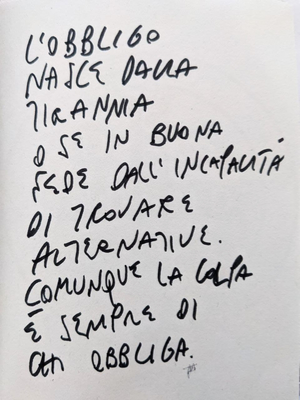 L'OBBLIGO
NASCE DALLA
TIRANNIA
O SE IN BUONA
FEDE DALL'INCAPACITÀ
DI TROVARE
ALTERNATIVE.
COMUNQUE LA COLPA
È SEMPRE DI
CHI OBBLIGA.